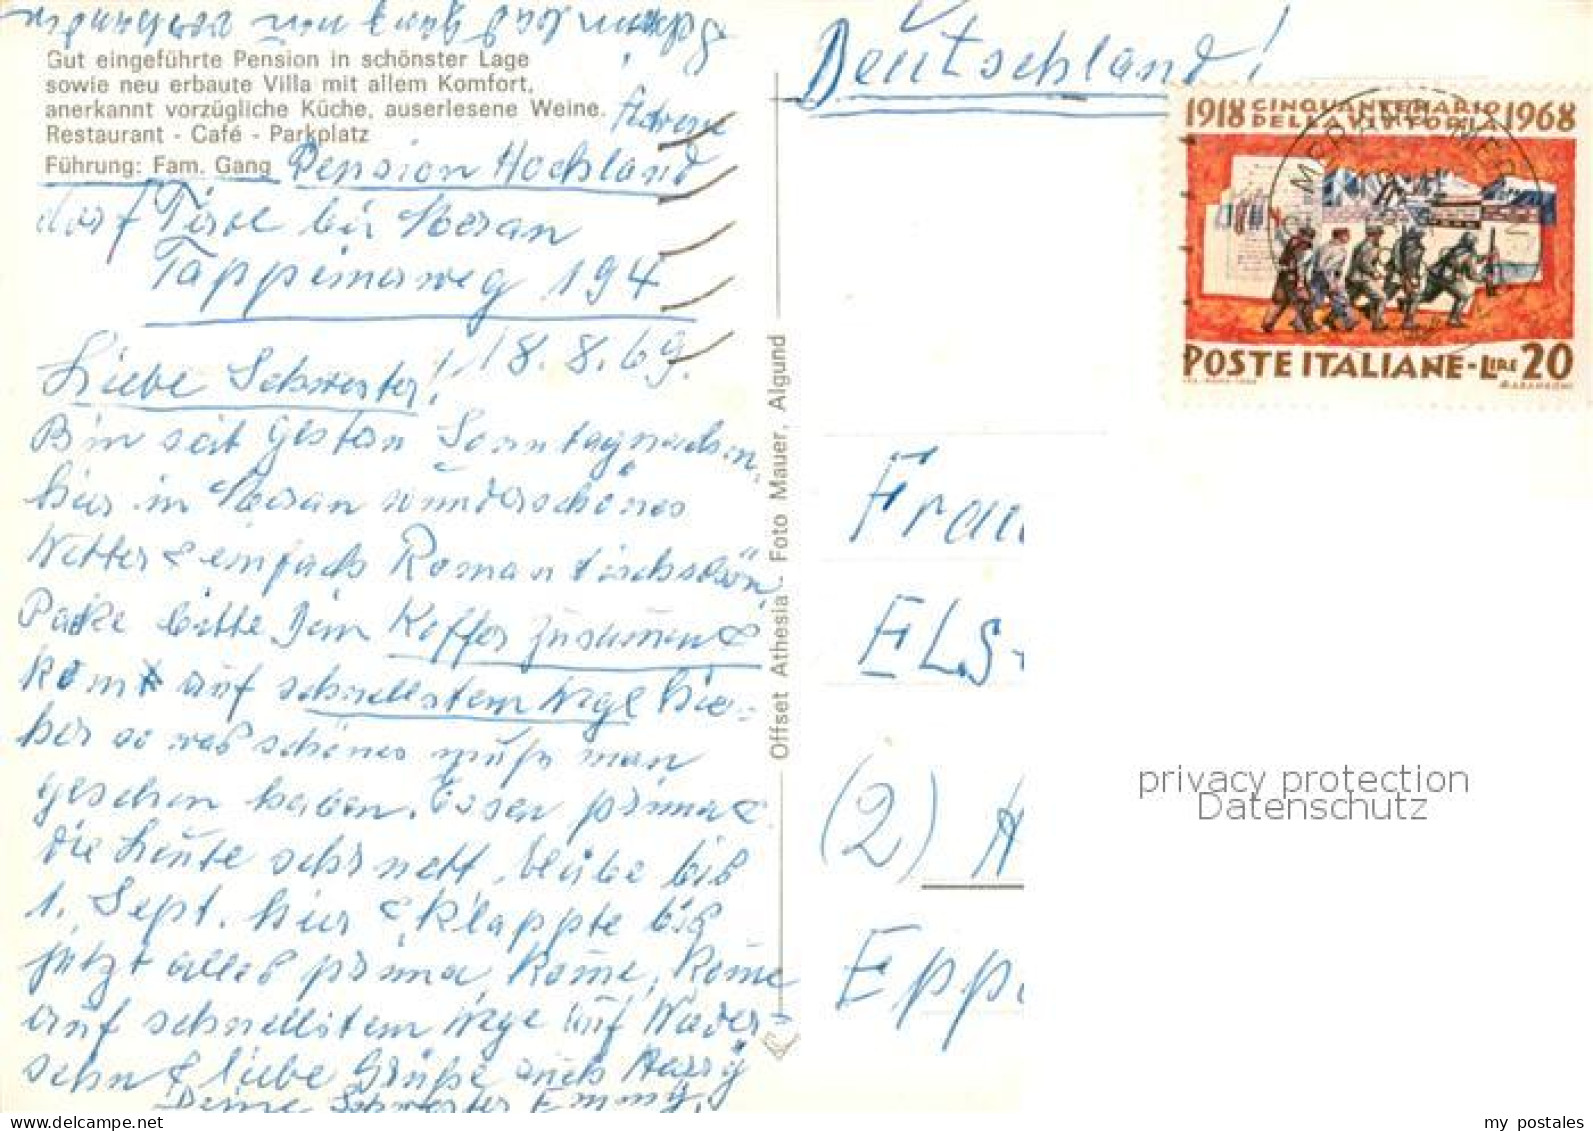 Deutschland!
Gut eingeführte Pension in schönster Lage
sowie neu erbaute Villa mit allem Komfort,
anerkannt vorzügliche Küche, auserlesene Weine.
Restaurant - Café - Parkplatz
Adresse
Führung: Fam. Gang Pension Hochland
dorf Tirol bei Meran
Tappeinerweg 194
18.8.69.
Liebe Schwester!
Bin seit gestern Sonntagnachm.
hier in Meran wunderschönes
Wetter & einfach Romantischschön,
Packe bitte Dein Koffer zusammen &
kom auf schnellstem Wege hie-
her so was schönes muß man
gesehen haben. Essen prima &
die Leute sehr nett, bleibe bis
1. Sept. hier & klappte bis
jetzt alles prima, kome, kome
auf schnellstem Wege auf Wieder-
sehn & liebe Grüße auch Harry
Deine Schwester Emmy.
Offset Athesia - Foto Mauer, Algund
1918 CINQUANTENARIO 1968
DELLA VITTORIA
POSTE ITALIANE - LIRE 20
Frau
ELS-
(2) H
Epp
privacy protection
Datenschutz
my postales